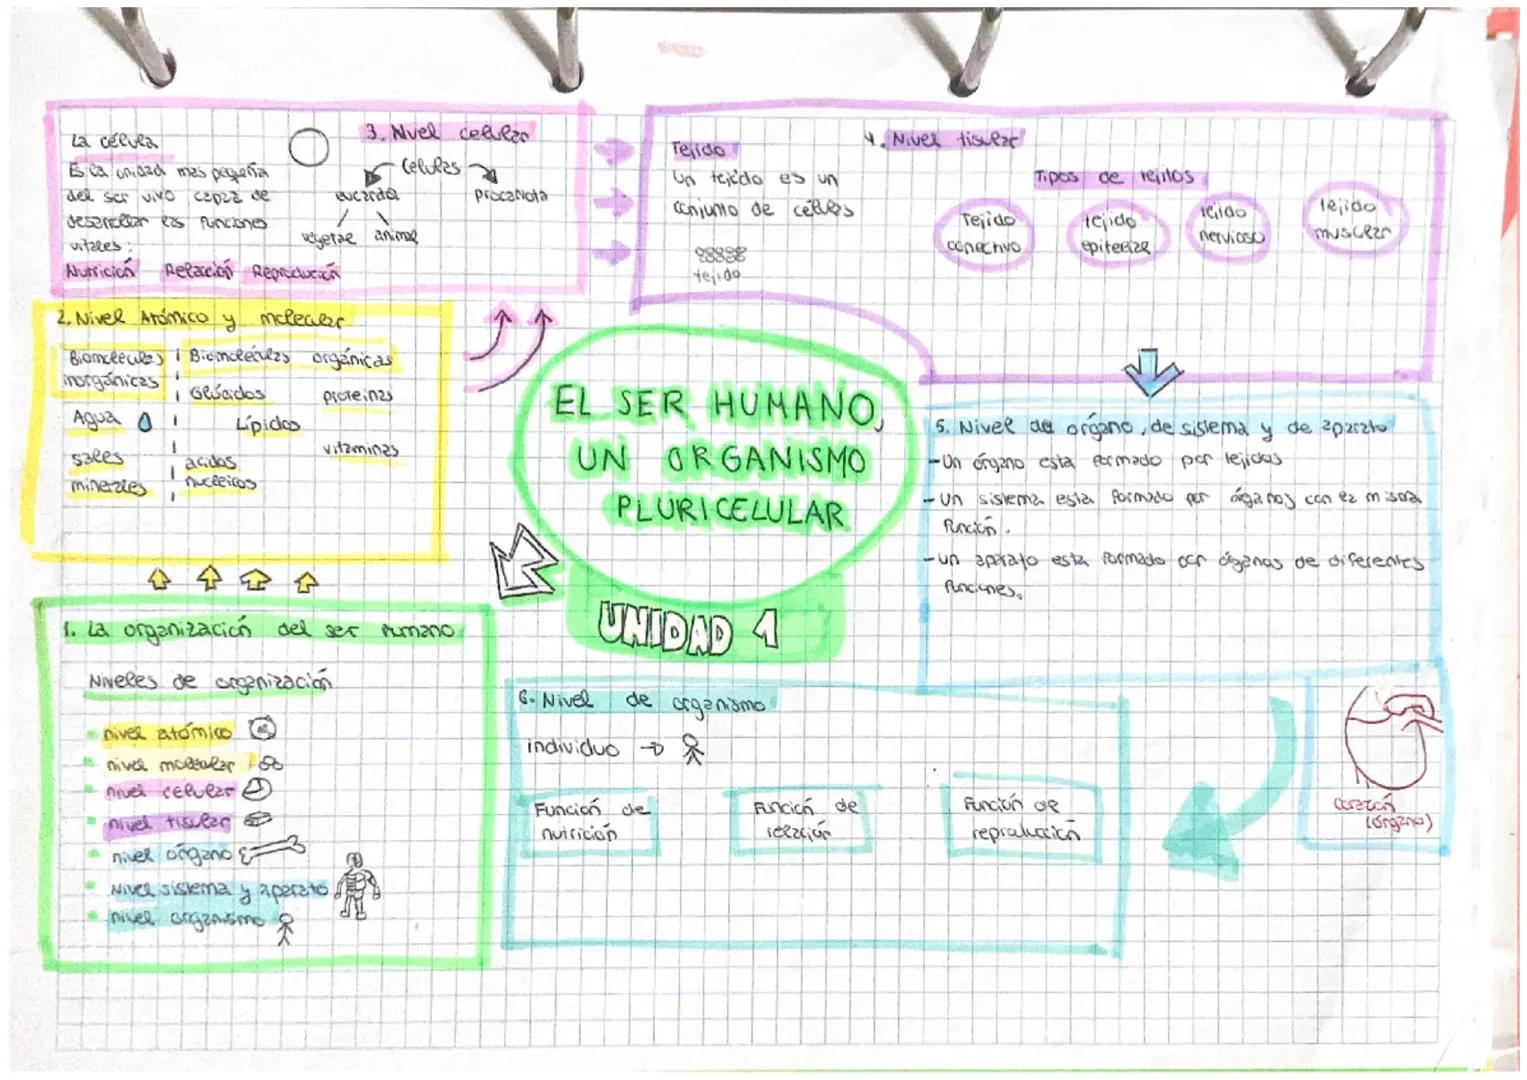 EL SER HUMANO,
UN ORGANISMO
PLURICELULAR
UNIDAD 1
1. La organización del ser humano
Niveles de organización
nivel atómico
nivel molecular
nivel celular
nivel tisular
nivel órgano
Nivel sistema y aparato
nivel organismo
2. Nivel Atómico y molecular
Biomoléculas
inorgánicas
Agua
sales
minerales
Biomoléculas orgánicas
Glúcidos
proteinas
Lípidos
vitaminas
acidos
nucleicos
3. Nivel celular
La célula
Es la unidad mas pequeña
del ser vivo capaz de
desarrollar las funciones
vitales:
Nutrición Relación Reproducción
Celulas
eucariota
procariota
vegetal animal
4. Nivel tisular
Tejido
Un tejido es un
conjunto de células
tejido
Tipos de tejidos
Tejido
conectivo
tejido
epitelial
tejido
nervioso
tejido
muscular
5. Nivel de órgano, de sistema y de aparato
-Un órgano esta formado por tejidos
-Un sistema esta formado por órganos con la misma
función.
-Un aparato esta formado por órganos de diferentes
funciones.
corazón
(órgano)
6- Nivel de organismo
individuo →
Función de
nutrición
Función de
relación
Función de
reproducción